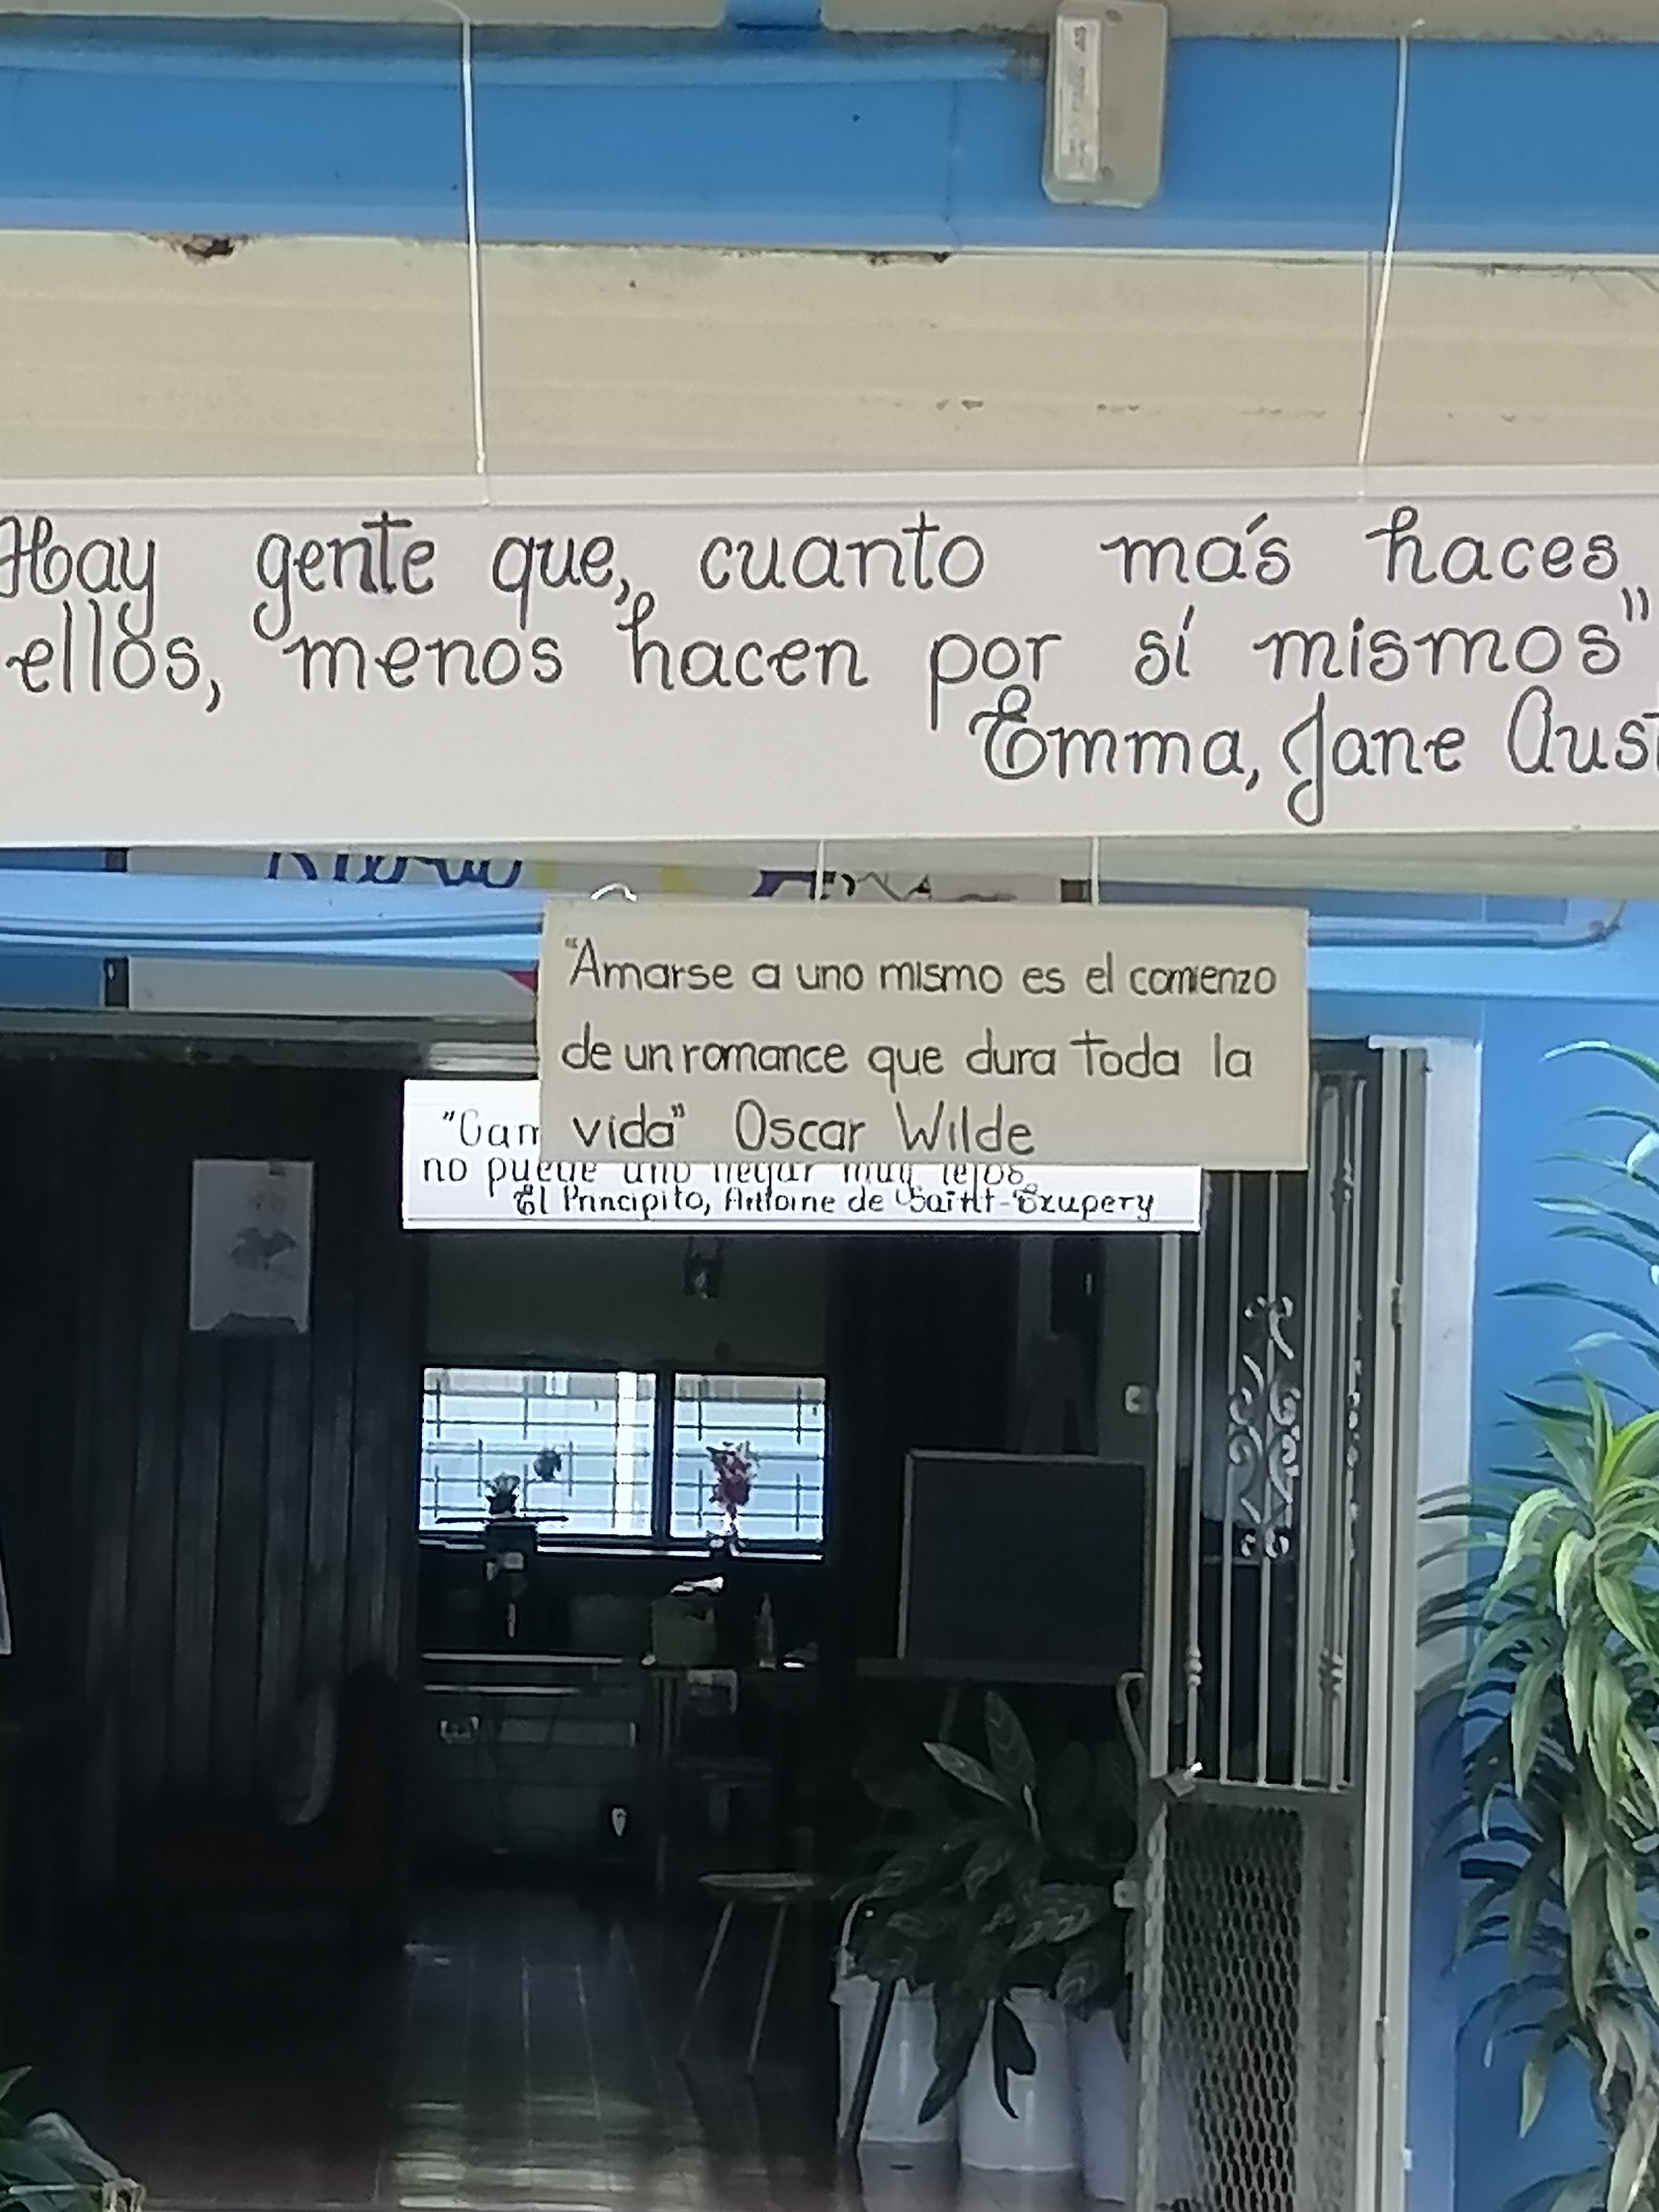 Hay gente que, cuanto más haces
ellos, menos hacen por sí mismos"
Emma, Jane Aust
"Amarse a uno mismo es el comienzo
de un romance que dura toda la
vida" Oscar Wilde
"Cam
no puede uno llegar muy lejos
El Principito, Antoine de Saint-Exupery